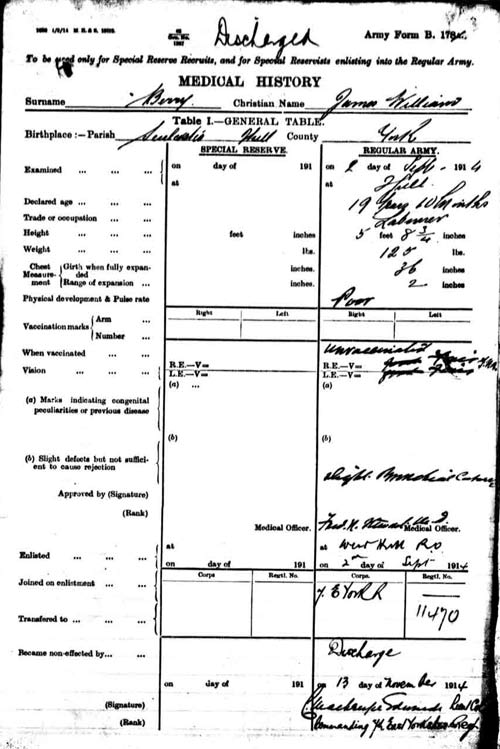 Discharged
Army Form B. 178
To be used only for Special Reserve Recruits, and for Special Reservists enlisting into the Regular Army.
MEDICAL HISTORY
Surname Berry Christian Name James William
Table I.—GENERAL TABLE.
Birthplace :—Parish Hull County York
SPECIAL RESERVE. REGULAR ARMY.
Examined ... ... ... on day of 191 on 2 day of Sept 1914
at at Hull
Declared age ... ... ... 19 Years 10 Months
Trade or occupation ... ... Labourer
Height ... ... ... feet inches 5 feet 8 3/4 inches
Weight ... ... ... lbs. 125 lbs.
Chest Measurement Girth when fully expanded inches. 36 inches.
Range of expansion ... inches. 2 inches.
Physical development & Pulse rate Poor
Right Left Right Left
Vaccination marks Arm ...
Number ...
When vaccinated ... ... Unvaccinated
Vision ... ... ... R.E.—V= R.E.—V= good
L.E.—V= L.E.—V= good
(a) ... (a)
(a) Marks indicating congenital peculiarities or previous disease
(b) (b)
(b) Slight defects but not sufficient to cause rejection
slight Bronchial
Approved by (Signature)
(Rank)
Medical Officer. Medical Officer.
Enlisted ... ... ... at at West Hull R.O
on day of 191 on 2nd day of Sept 1914
Corps Regtl. No. Corps. Regtl. No.
Joined on enlistment ... ... 7. E York R
11470
Transferred to ... ... ...
Became non-effected by... ... Discharge
on day of 191 on 13 day of November 1914
(Signature) Lieut Col
(Rank) Commanding 7th East Yorkshire Reg